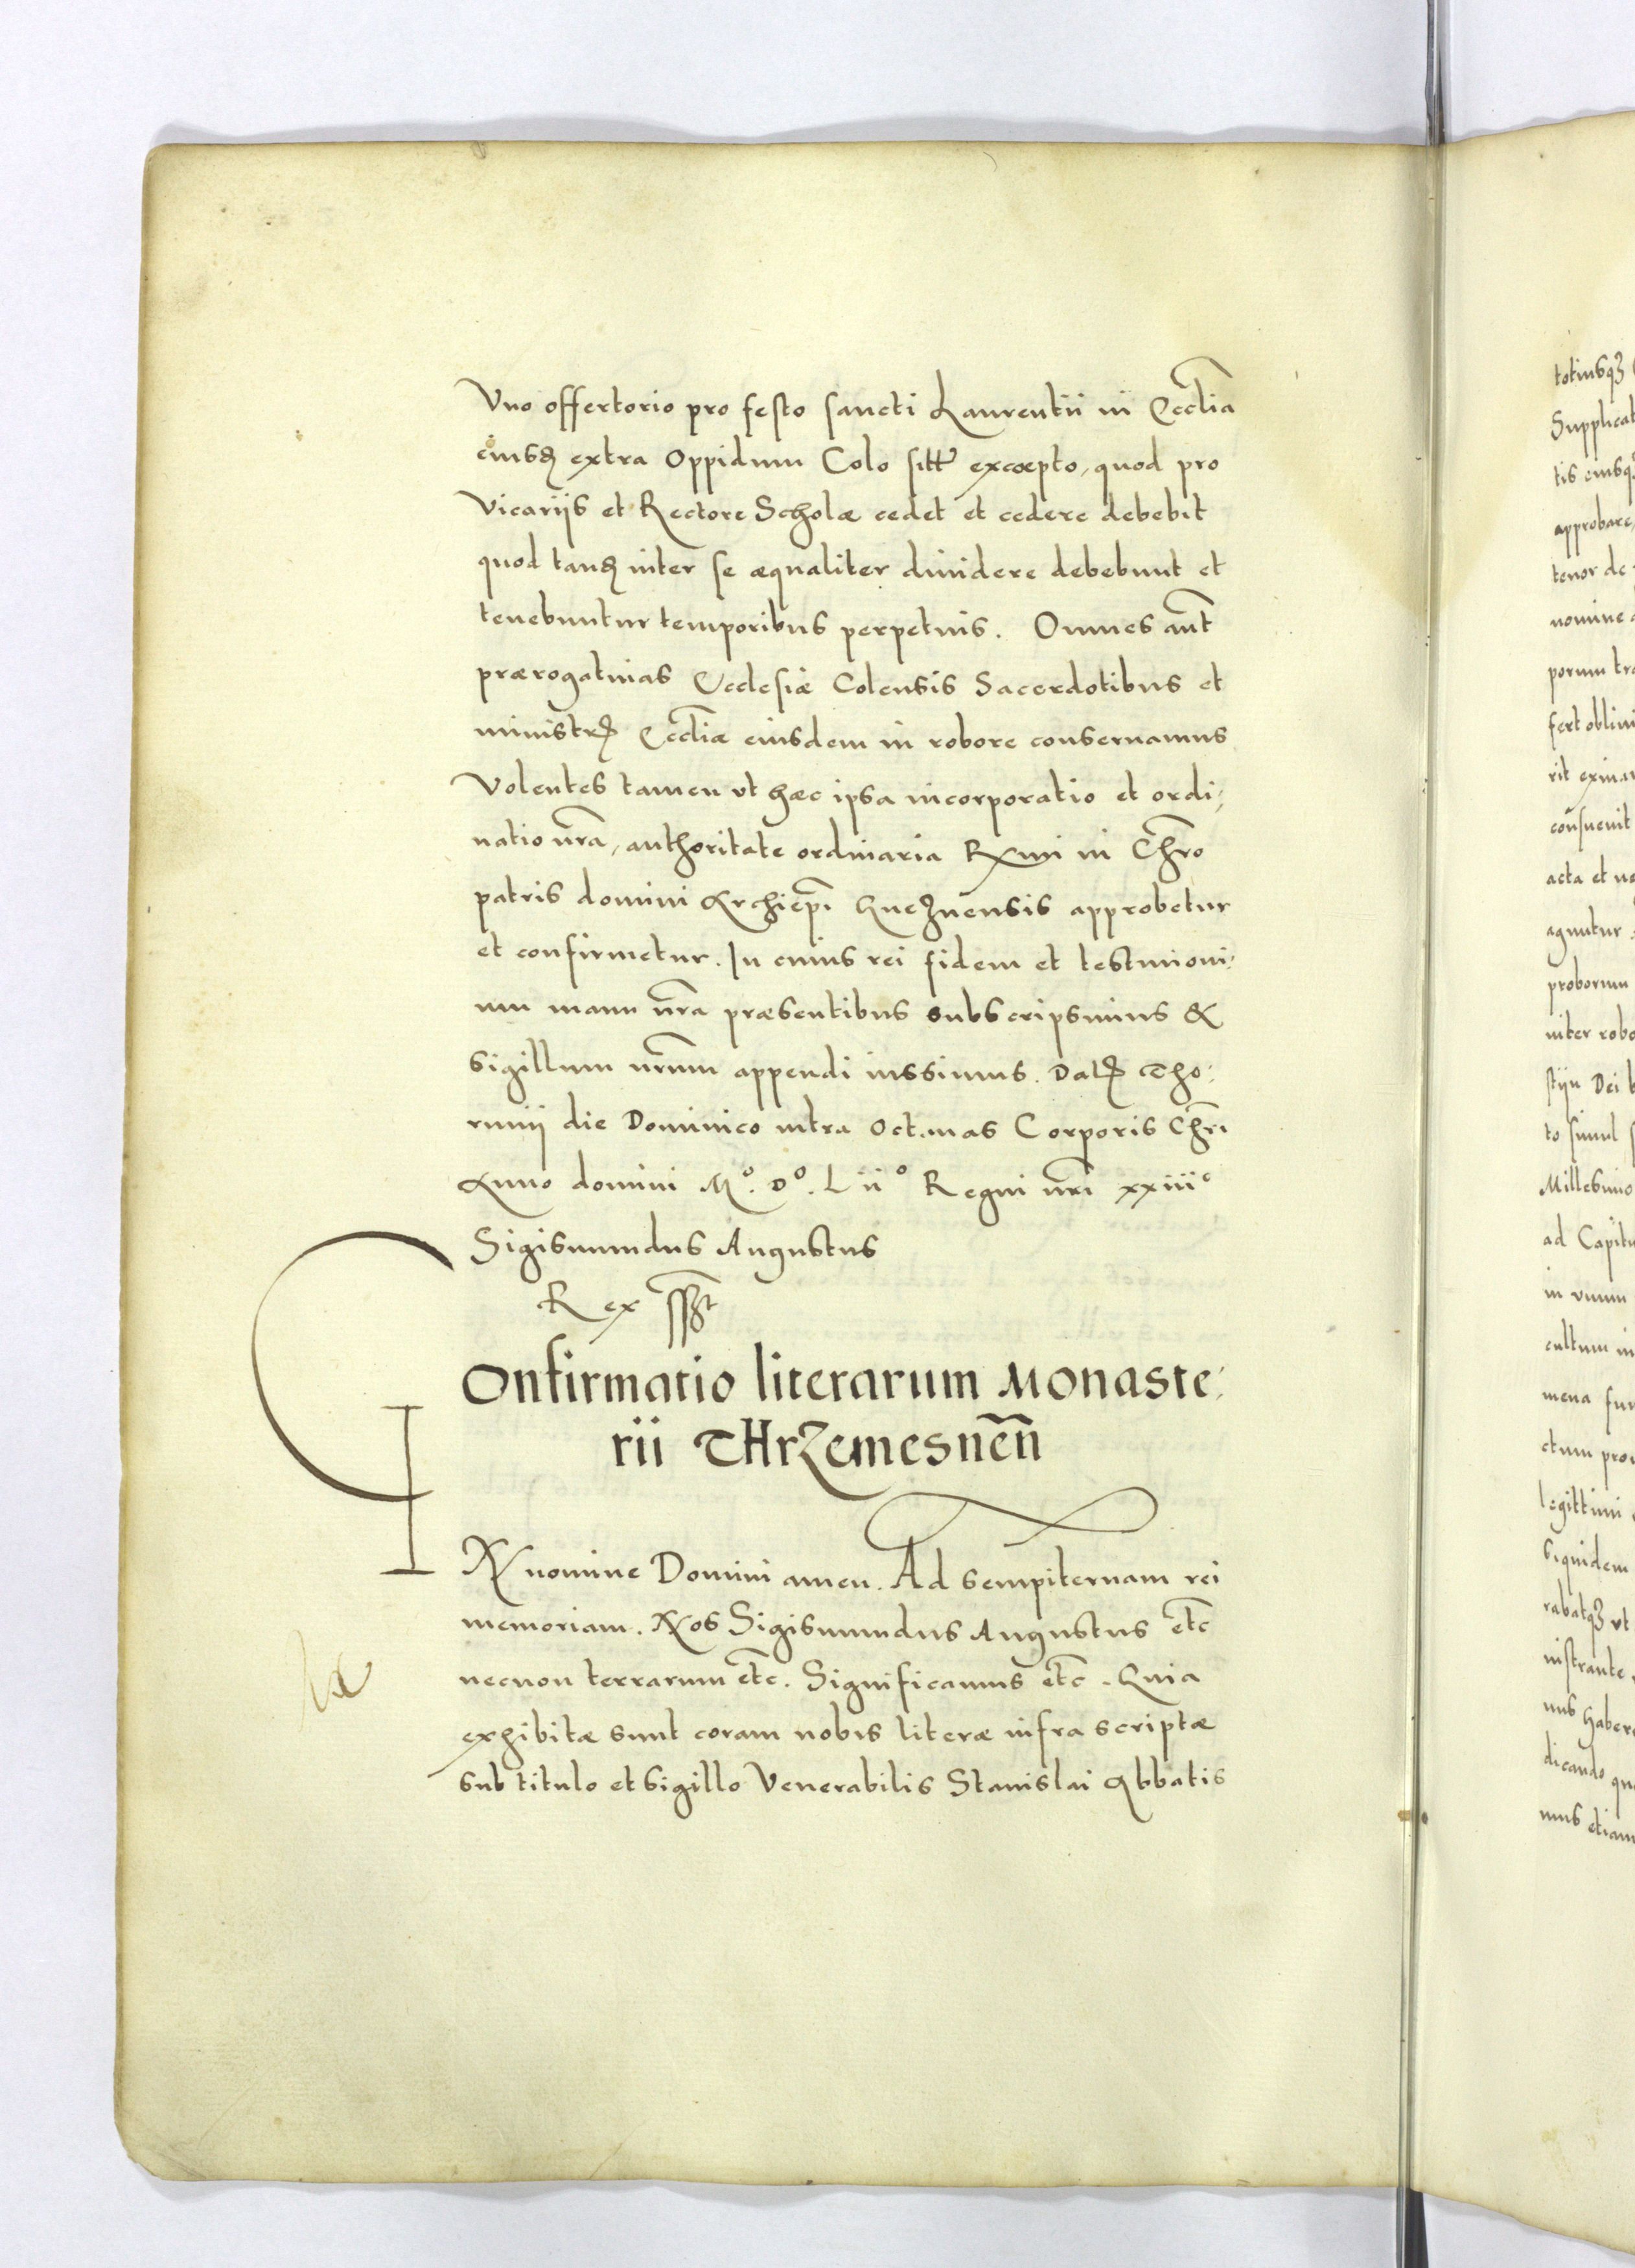 Vno offertorio pro festo sancti Laurentii in Ecclia
eiusd extra oppidum Colo sitt excoepto, quod pro
Vicarijs et Rectore Scholæ cedet et cedere debebit
quod tand inter se æqualiter diuidere debebunt et
tenebuntur temporibus perpetuis. Omnes aut
prærogatiuas Ecclesiæ Colensis Sacerdotibus et
ministr Eccliæ eiusdem in robore conseruamus
Volentes tamen vt hæc ipsa incorporatio et ordi,
natio nra, authoritate ordinaria Rxmi in Chro
patris domini Archiepi Gnezneusis approbetur
et confirmetur. In cuius rei fidem et testimoni,
um manu nra præsentibus subscripsimus &
sigillum nrum appendi iussimus. Dat Tho,
runij die Dominico intra octauas Corporis Chri
Anno domini M°. D°. L ii° Regni nri xxiii°
Sigismundus Augustus
Rex sszt
COnfirmatio literarum Monaste,
rii THrzemesnen
IN nomine Domini amen. Ad sempiternam rei
memoriam. Nos Sigismundus Augustus etc
necnon terrarum etc. Significamus etc. Quia
exhibitæ sunt coram nobis literæ infra scriptæ
sub titulo et sigillo Venerabilis Stanislai Abbatis
totiusq
Supplicat
tis eiusq
approbare,
tenor de
nomine
porum tra
fert obliui
rit exina
consueuit
acta et
aguntur
proborum
inter robo
Dei
to simul
Millesimo
ad Capitu
in vnum
cultum in
mena fun
ctum pro
legittimi
siquidem
rabatq vt
nistrante
nus haber
dicando
mus etiam